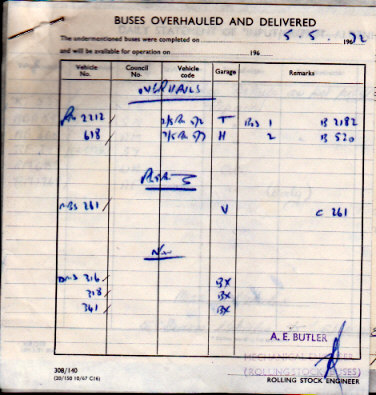 BUSES OVERHAULED AND DELIVERED
The undermentioned buses were completed on 5.5. 1972
and will be available for operation on 196
Vehicle No. Council No. Vehicle code Garage Remarks
OVERHAULS
RM 2212 T 1 B 2182
618 H 2 B 520
MBS 261 V C 261
New
DMS 316 BX
318 BX
341 BX
A. E. BUTLER
MECHANICAL ENGINEER
(ROLLING STOCK BUSES)
308/140
(20/150 10/67 C(6)
ROLLING STOCK ENGINEER